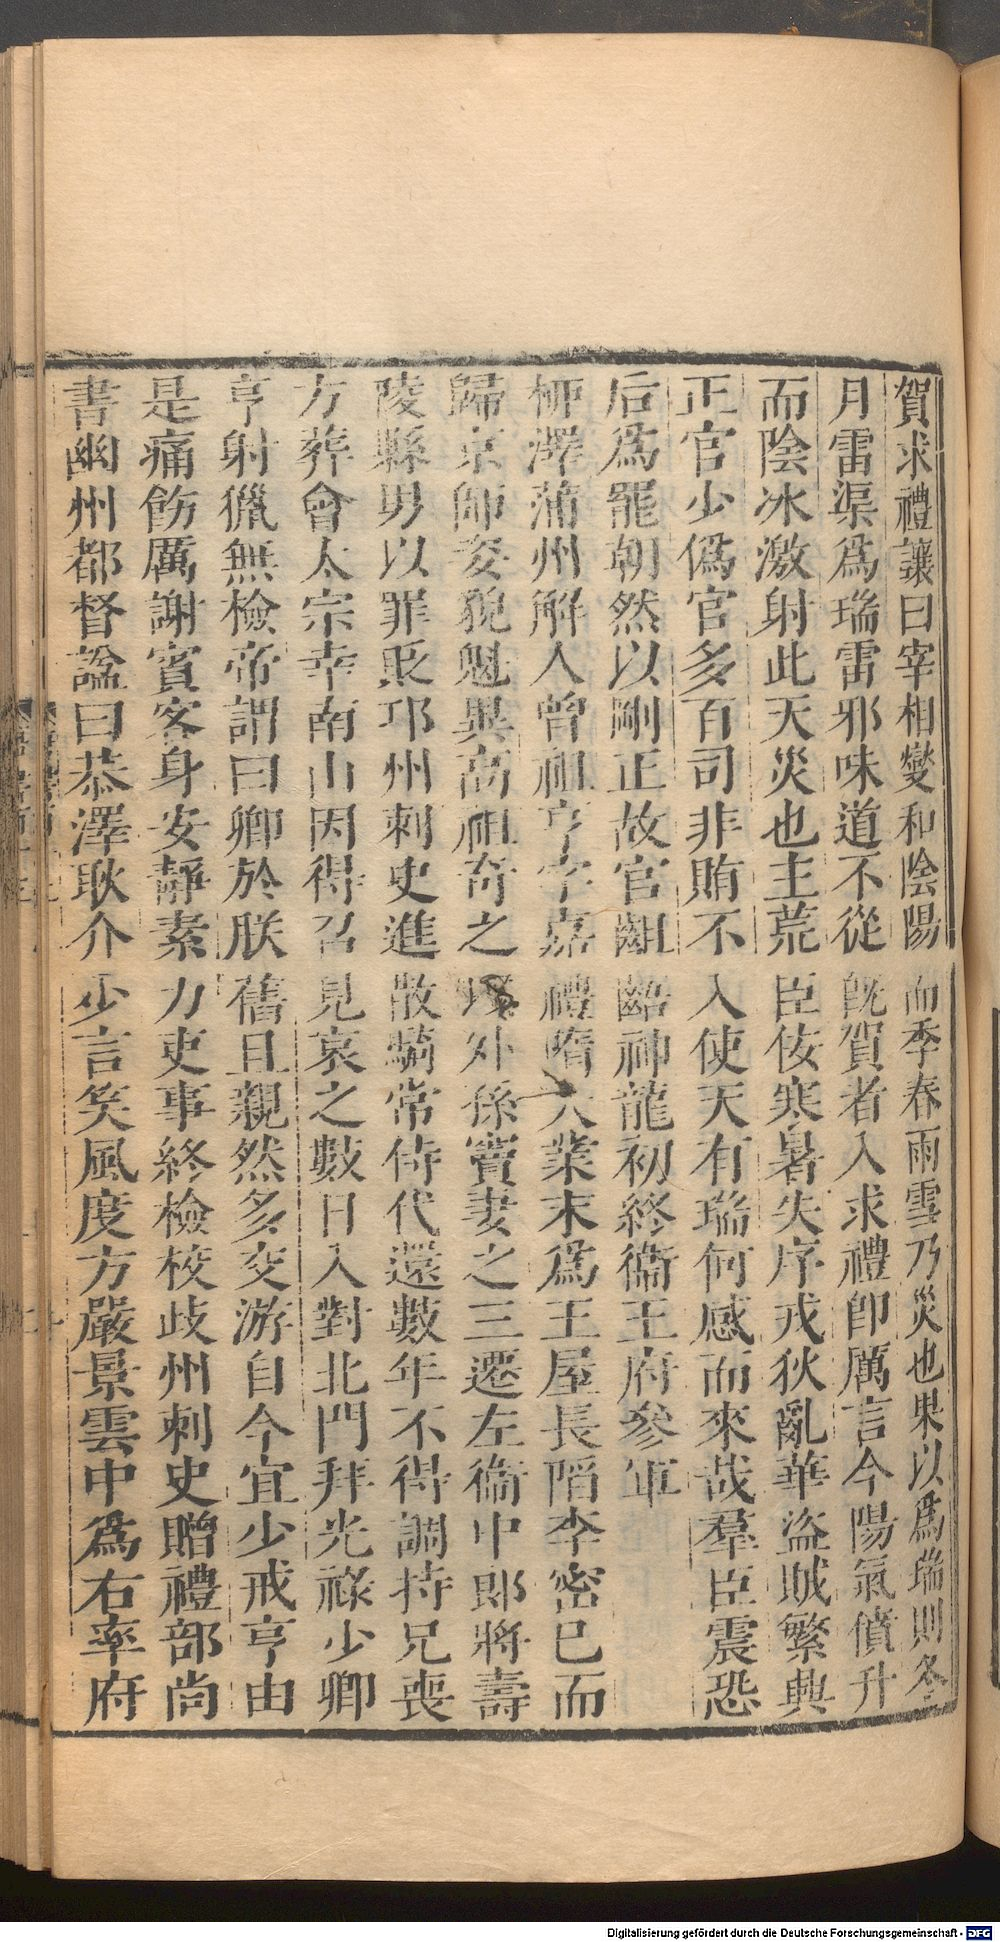 賀求禮讓曰宰相燮和陰陽而季春雨雪乃災也果以爲瑞則冬
月雷渠爲瑞雷邪味道不從既賀者入求禮卽厲言今陽氣僨升
而陰冰激射此天災也主荒臣佞寒暑失序戎狄亂華盜賊繁興
正官少僞官多百司非賄不入使天有瑞何感而來哉羣臣震恐
后爲罷朝然以剛正故官齟齬神龍初終衞王府參軍
柳澤蒲州解人曾祖亨字嘉禮隋大業末爲王屋長陷李密已而
歸京師姿貌魁異高祖奇之以外孫竇妻之三遷左衞中郎將壽
陵縣男以罪貶邛州刺史進散騎常侍代還數年不得調持兄喪
方葬會太宗幸南山因得召見哀之數日入對北門拜光祿少卿
亨射獵無檢帝謂曰卿於朕舊且親然多交游自今宜少戒亨由
是痛飭厲謝賓客身安靜素力吏事終檢校歧州刺史贈禮部尚
書幽州都督諡曰恭澤耿介少言笑風度方嚴景雲中爲右率府
Digitalisierung gefördert durch die Deutsche Forschungsgemeinschaft - DFG